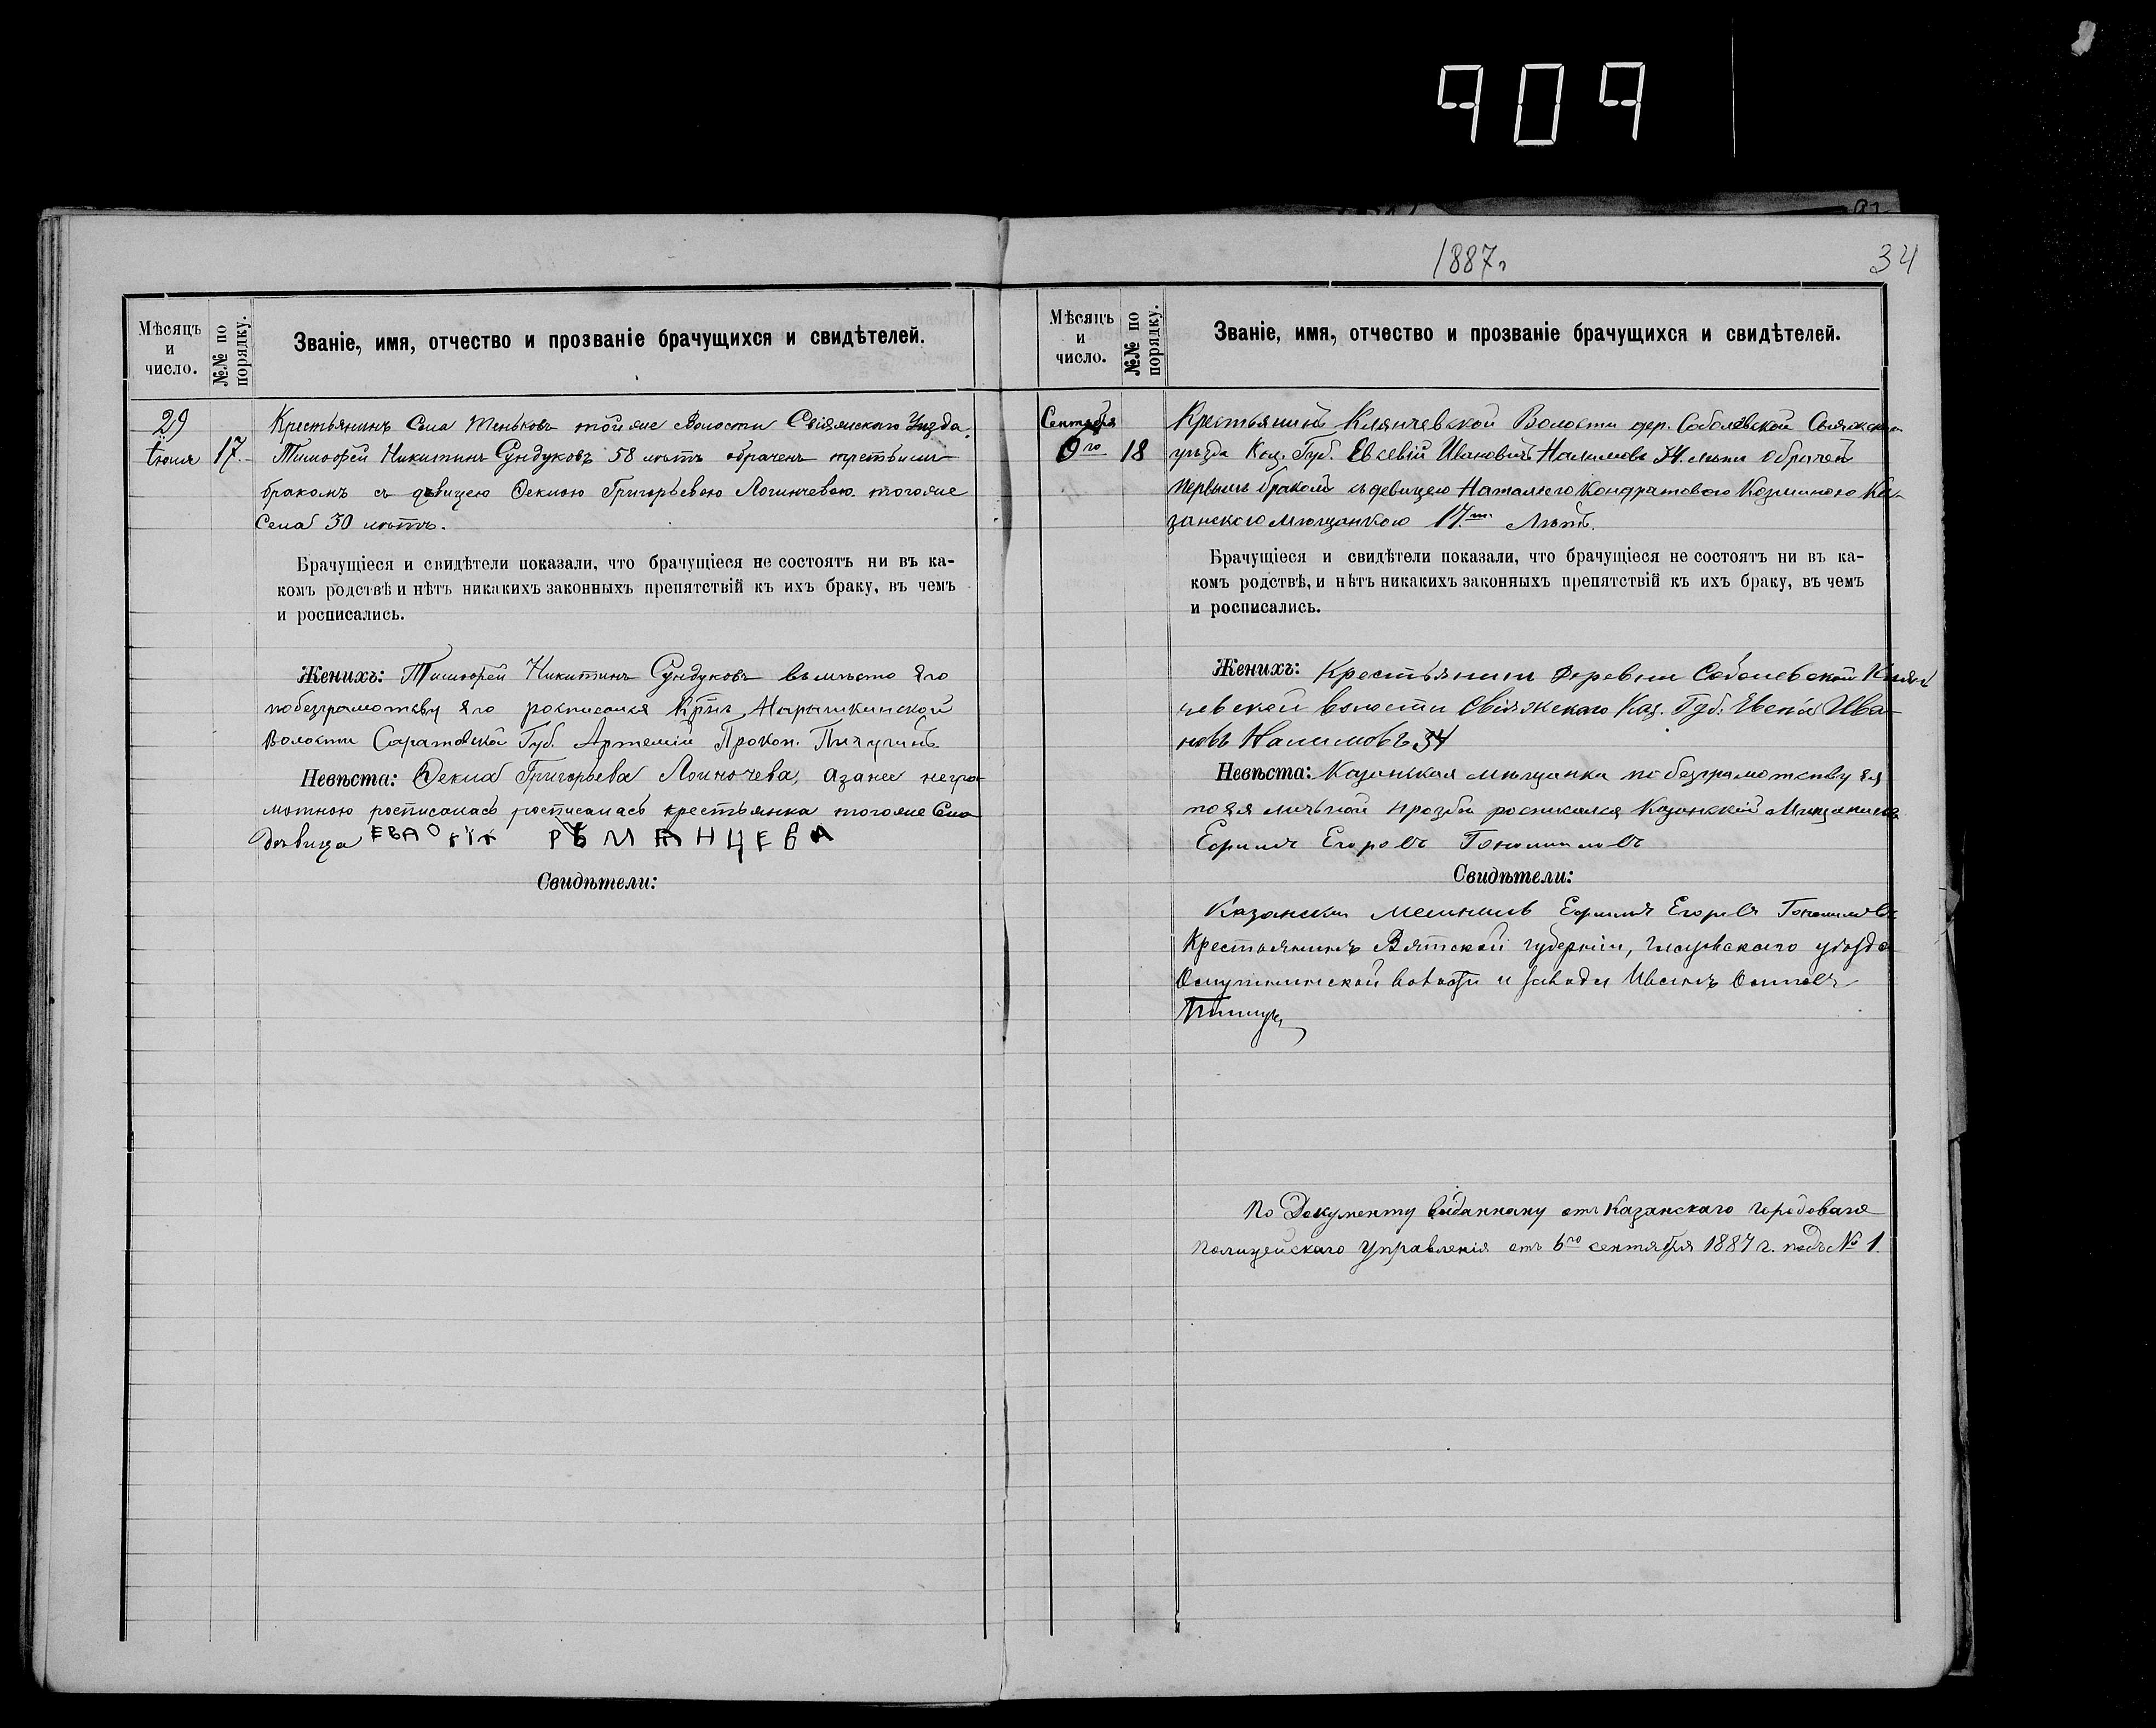 909
1887г
34
Мѣсяцъ
и
число.
№№ по
порядку.
Званіе, имя, отчество и прозваніе брачущихся и свидѣтелей.
29
Іюня 17.
Крестьянинъ Села Теньковъ той же Волости Свіяжскаго Уезда.
Тимофей Никитинъ Сундуковъ 58 лѣтъ обраченъ третьимъ
бракомъ съ девицею Феклою Григорьевою Логинчевою того же
Села 30 лѣтъ.
Брачущіеся и свидѣтели показали, что брачущіеся не состоятъ ни въ ка-
комъ родствѣ и нѣтъ никакихъ законныхъ препятствій къ ихъ браку, въ чемъ
и росписались.
Женихъ: Тимофей Никитинъ Сундуковъ вместо Яго
по безграмотству Яго росписался Крнъ Нарышкинской
Волости Саратовской Губ. Артемій Прокоп. Пичугинъ
Невѣста: Фекла Григорьева Логиночева, а за нее негра-
мотною росписалась росписалась крестьянка того же Села
Девица ЕВДОКІЯ РУМЯНЦЕВА
Свидѣтели:
Мѣсяцъ
и
число.
№№ по
порядку.
Званіе, имя, отчество и прозваніе брачущихся и свидѣтелей.
Сентября
6го 18
Крестьянинъ Клянчевской Волости дер. Соболевской Свіяжскаго
уѣзда Каз. Губ. Евсевій Ивановичъ Налимовъ 34. лѣтъ обраченъ
первымъ бракомъ съ девицею Наталіею Кондратовою Козминою Ка-
занскою мещанкою 17.ти Лѣтъ.
Брачущіеся и свидѣтели показали, что брачущіеся не состоятъ ни въ ка-
комъ родствѣ, и нѣтъ никакихъ законныхъ препятствій къ ихъ браку, въ чемъ
и росписались.
Женихъ: Крестьянинъ деревни Соболевской Клян
чевской волости Свіяжскаго Каз. Губ: Ивa
новъ Налимовъ 34
Невѣста: Казанская мѣщанка по безграмотству ея
по ея личьной прозьбе росписался Казанскій Мещанинъ
Ефимъ Егоровъ
Свидѣтели:
Казански Ефимъ Егоровъ
Крестьянинъ Вятской губерніи, Глазовскаго уѣзда
Омутнинской волости и завода Иванъ
По Документу выданному отъ Казанскаго городоваго
Полицейскаго Управленія отъ 6го сентября 1887 г. подъ № 1.